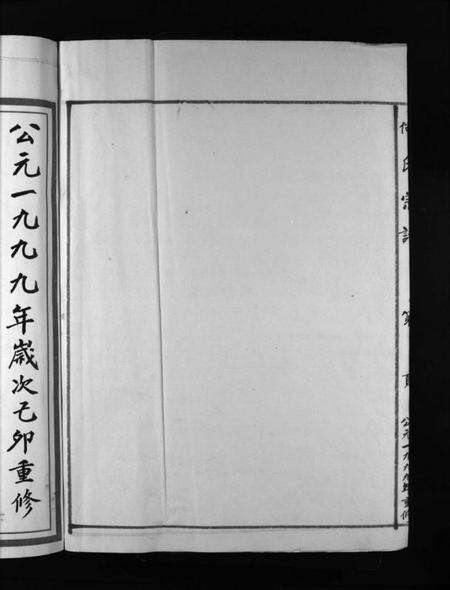 氏宗譜
第 頁
公元一九九九年重修
公元一九九九年歲次己卯重修